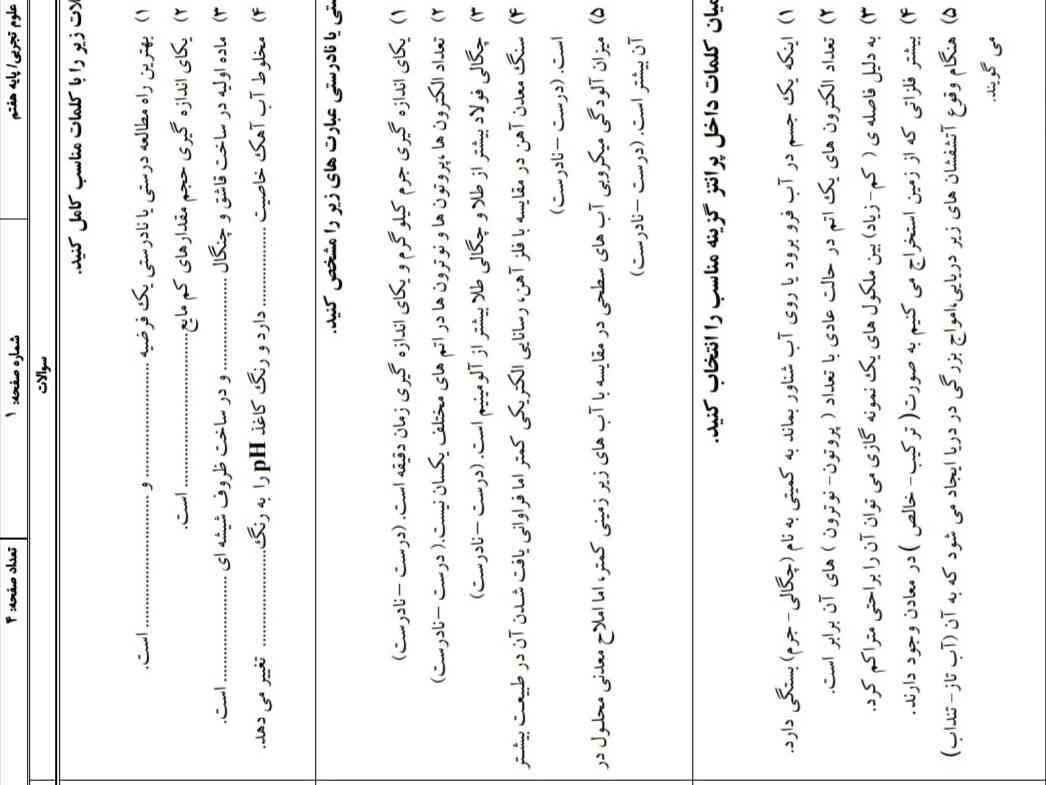 علوم تجربی/ پایه هفتم
شماره صفحه: ۱
تعداد صفحه: ۴
سوالات
لات زیر را با کلمات مناسب کامل کنید.
۱) بهترین راه مطالعه درستی یا نادرستی یک فرضیه .................... و .................... است.
۲) یکای اندازه گیری حجم مقدارهای کم مایع.................... است.
۳) ماده اولیه در ساخت قاشق و چنگال .................... و در ساخت ظروف شیشه ای .................... است.
۴) مخلوط آب آهک خاصیت .................... دارد و رنگ کاغذ pH را به رنگ.................... تغییر می دهد.
ستی یا نادرستی عبارت های زیر را مشخص کنید.
۱) یکای اندازه گیری جرم کیلوگرم و یکای اندازه گیری زمان دقیقه است. (درست –نادرست)
۲) تعداد الکترون ها،پروتون ها و نوترون ها در اتم های مختلف یکسان نیست.( درست –نادرست)
۳) چگالی فولاد بیشتر از طلا و چگالی طلا بیشتر از آلومینیم است. (درست –نادرست)
۴) سنگ معدن آهن در مقایسه با فلز آهن، رسانایی الکتریکی کمتر اما فراوانی یافت شدن آن در طبیعت بیشتر
است. (درست –نادرست)
۵) میزان آلودگی میکروبی آب های سطحی در مقایسه با آب های زیر زمینی کمتر، اما املاح معدنی محلول در
آن بیشتر است. (درست –نادرست)
میان کلمات داخل پرانتز گزینه مناسب را انتخاب کنید.
۱) اینکه یک جسم در آب فرو برود یا روی آب شناور بماند به کمیتی به نام (چگالی- جرم) بستگی دارد.
۲) تعداد الکترون های یک اتم در حالت عادی با تعداد ( پروتون- نوترون ) های آن برابر است.
۳) به دلیل فاصله ی ( کم- زیاد) بین ملکول های یک نمونه گازی می توان آن را براحتی متراکم کرد.
۴) بیشتر فلزاتی که از زمین استخراج می کنیم به صورت( ترکیب- خالص ) در معادن وجود دارند.
۵) هنگام وقوع آتشفشان های زیر دریایی،امواج بزرگی در دریا ایجاد می شود که به آن (آب تاز- تنداب)
می گویند.